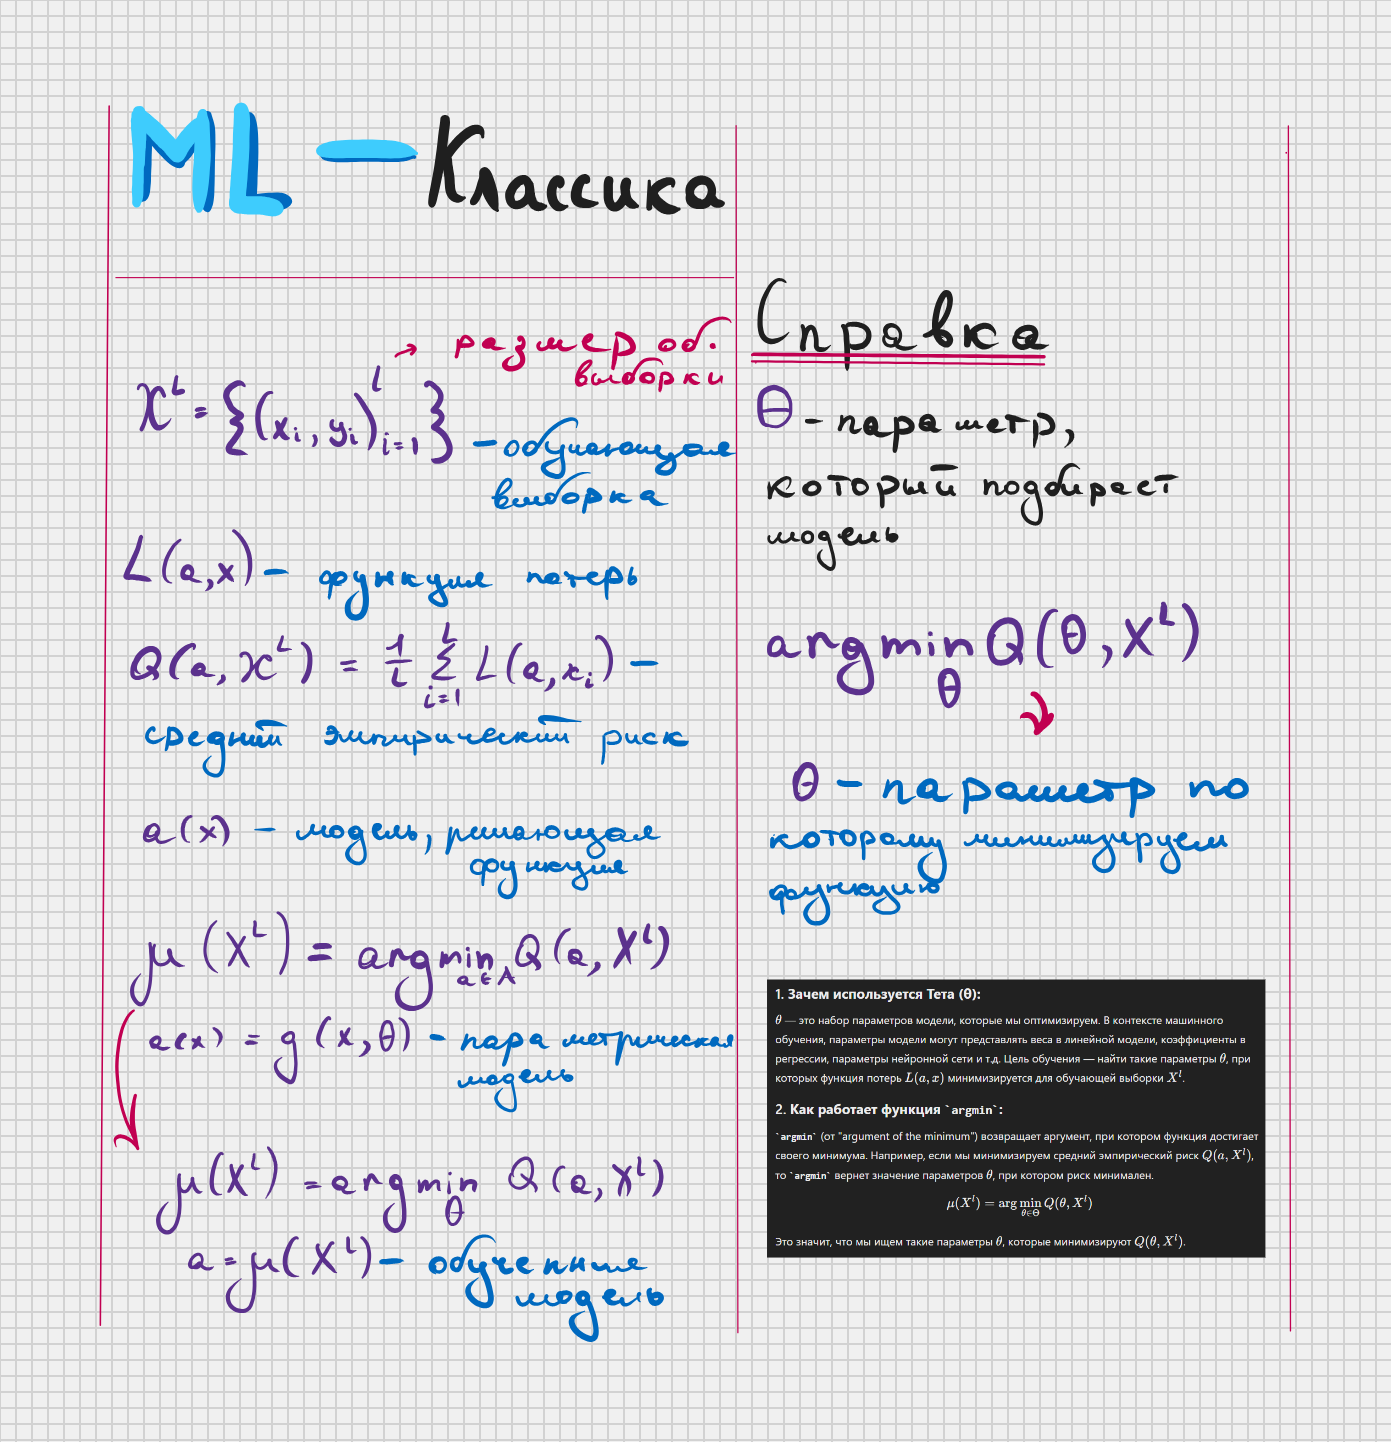 ML — Классика
→ размер об.
выборки
X^L = {(x_i, y_i)^l_{i=1}} – обучающая
выборка
L(a,x) – функция потерь
Q(a, X^L) = 1/L Σ^L_{i=1} L(a, x_i) –
средний эмпирический риск
a(x) – модель, решающая
функция
μ(X^L) = argmin_{a∈A} Q(a, X^L)
a(x) = g(x, θ) – параметрическая
модель
μ(X^L) = argmin_θ Q(a, X^L)
a = μ(X^L) – обученние
модель
Справка
θ – параметр,
который подбирает
модель
argmin_θ Q(θ, X^L)
θ – параметр по
которому минимизируем
функцию
1. Зачем используется Тета (θ):
θ — это набор параметров модели, которые мы оптимизируем. В контексте машинного
обучения, параметры модели могут представлять веса в линейной модели, коэффициенты в
регрессии, параметры нейронной сети и т.д. Цель обучения — найти такие параметры θ, при
которых функция потерь L(a, x) минимизируется для обучающей выборки X^l.
2. Как работает функция `argmin`:
`argmin` (от "argument of the minimum") возвращает аргумент, при котором функция достигает
своего минимума. Например, если мы минимизируем средний эмпирический риск Q(a, X^l),
то `argmin` вернет значение параметров θ, при котором риск минимален.
μ(X^l) = arg min_{θ∈Θ} Q(θ, X^l)
Это значит, что мы ищем такие параметры θ, которые минимизируют Q(θ, X^l).